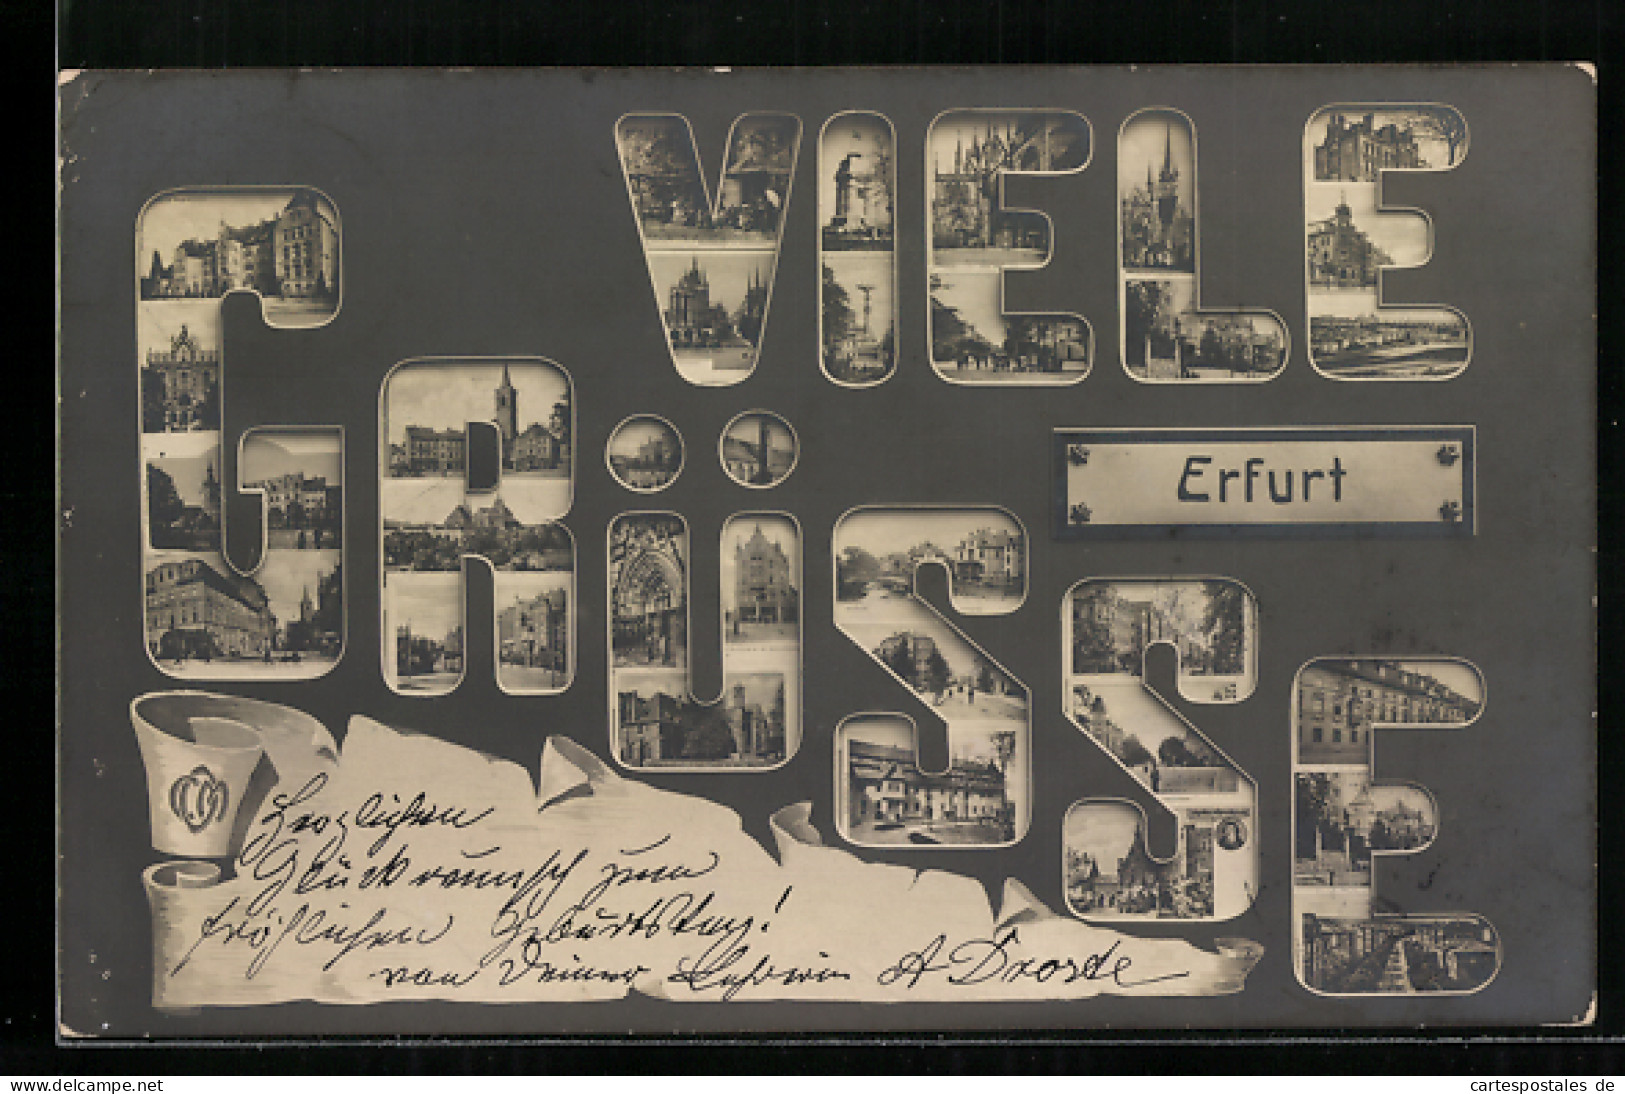 VIELE
GRÜSSE
Erfurt
Herzlichen
Glückwunsch zum
fröhlichen Geburtstag!
von Deiner Lehrerin A Droste
www.delcampe.net
cartespostales de